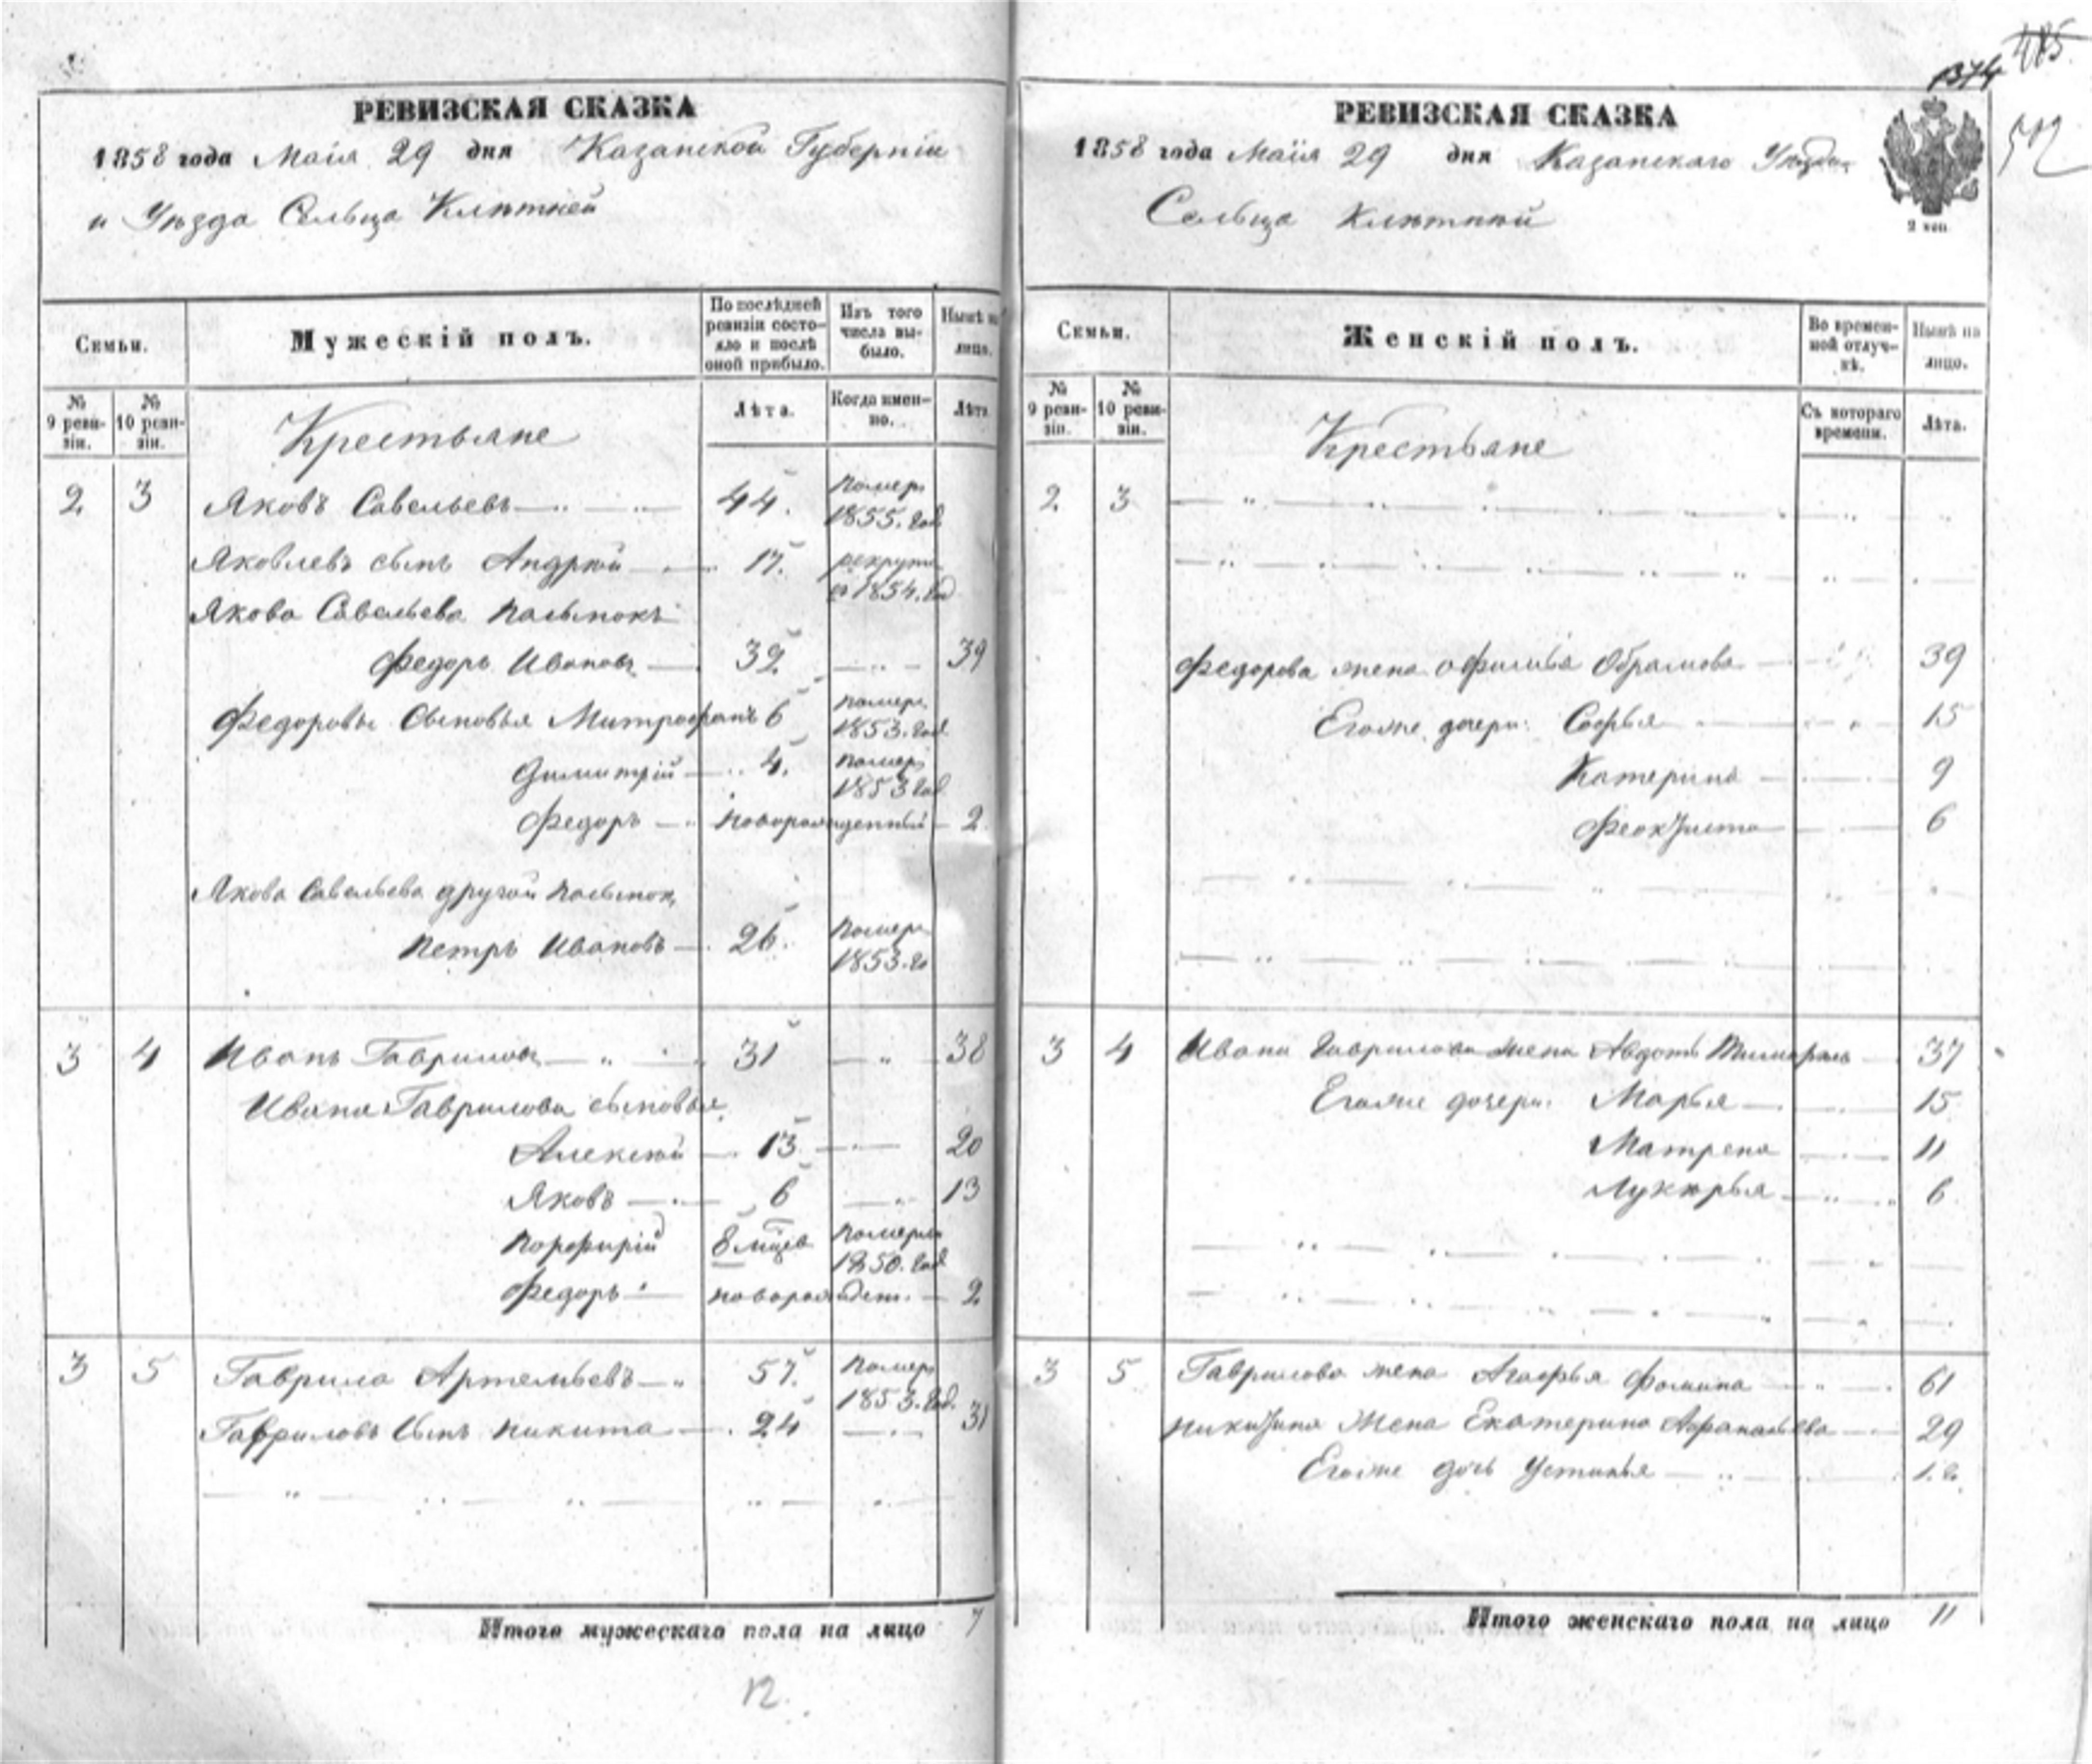 1374 485
РЕВИЗСКАЯ СКАЗКА
1858 года Маія 29 дня Казанской Губерніи
и Уѣзда Сельца Клѣтней
Семьи.
Мужескій полъ.
По послѣдней ревизіи состояло и послѣ оной прибыло.
Изъ того числа выбыло.
Нынѣ на лицо.
№ 9 ревизіи.
№ 10 ревизіи.
Крестьяне
Лѣта.
Когда именно.
Лѣта
2 3 Яковъ Савельевъ 44. помер 1855. год
Яковлевъ сынъ Андрей 17. рекрут 1854. год
Якова Савельева пасынокъ
Федоръ Ивановъ 32 39
Федоровы сыновья Митрофанъ 6 помер 1853. год
Димитрій 4. помер 1853 год
Федоръ новорожденный 2
Якова Савельева другой пасынок
Петръ Ивановъ 26. помер 1853. го
3 4 Иванъ Гавриловъ 31 38
Ивана Гаврилова сыновья
Алексей 13 20
Яковъ 6 13
Порфирій 8 мцев помер 1850. год
Федоръ новорожден. 2
3 5 Гаврила Артемьевъ 57. помер 1853. год.
Гавриловъ сынъ Никита 24 31
Итого мужескаго пола на лицо 7
12.
РЕВИЗСКАЯ СКАЗКА
1858 года Маія 29 дня Казанскаго Уѣзда
Сельца Клѣтней
2 коп
512
Семьи.
Женскій полъ.
Во временной отлучкѣ.
Нынѣ на лицо.
№ 9 ревизіи.
№ 10 ревизіи.
Крестьяне
Съ котораго времени.
Лѣта.
2 3
Федорова жена Офимья Обрамова 39
Егоже дочери: Софья 15
Катерина 9
Феоктиста 6
3 4 Ивана Гаврилова жена Авдотья 37
Егоже дочери: Марья 15
Матрена 11
Лукерья 6
3 5 Гаврилова жена Агафья Фомина 61
Никитина жена Екатерина Афанасьева 29
Егоже дочь Устинья 1. г.
Итого женскаго пола на лицо 11